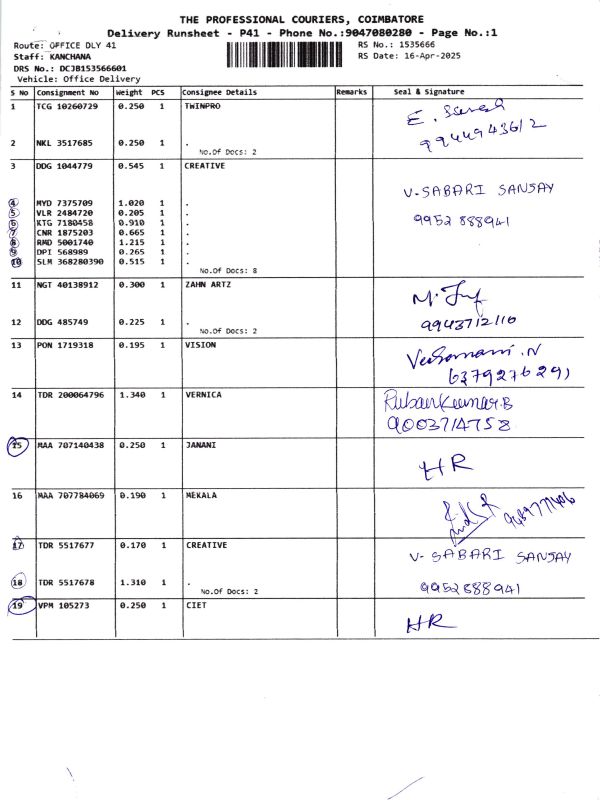 THE PROFESSIONAL COURIERS, COIMBATORE
Delivery Runsheet - P41 - Phone No.:9047080280 - Page No.:1
Route: OFFICE DLY 41 RS No.: 1535666
Staff: KANCHANA RS Date: 16-Apr-2025
DRS No.: DCJB153566601
Vehicle: Office Delivery
S No Consignment No Weight PCS Consignee Details Remarks Seal & Signature
1 TCG 10260729 0.250 1 TWINPRO
9944943612
2 NKL 3517685 0.250 1 .
No.Of Docs: 2
3 DDG 1044779 0.545 1 CREATIVE
V. SABARI SANJAY
4 MYD 7375709 1.020 1 .
5 VLR 2484720 0.205 1 .
6 KTG 7180458 0.910 1 . 9952888941
7 CNR 1875203 0.665 1 .
8 RMD 5001740 1.215 1 .
9 DPI 568989 0.265 1 .
10 SLM 368280390 0.515 1 .
No.Of Docs: 8
11 NGT 40138912 0.300 1 ZAHN ARTZ
12 DDG 485749 0.225 1 . 9943712110
No.Of Docs: 2
13 PON 1719318 0.195 1 VISION
6379276291
14 TDR 200064796 1.340 1 VERNICA RubanKumar.B
9003714758
15 MAA 707140438 0.250 1 JANANI
HR
16 MAA 707784069 0.190 1 MEKALA
17 TDR 5517677 0.170 1 CREATIVE V. SABARI SANJAY
18 TDR 5517678 1.310 1 . 9952888941
No.Of Docs: 2
19 VPM 105273 0.250 1 CIET
HR